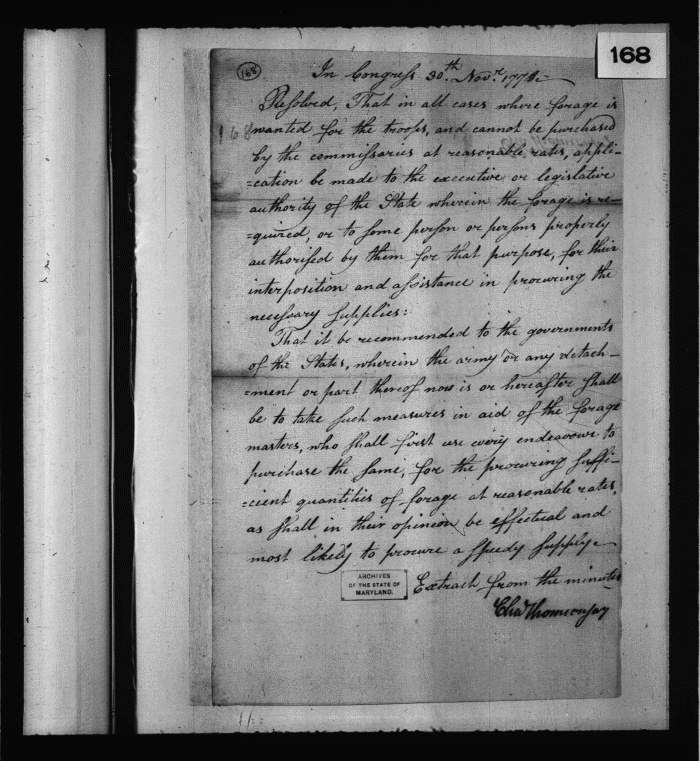 168
168
In Congress 30th Novr. 1778.
Resolved, That in all cases where forage is
168
wanted for the troops, and cannot be purchased
by the commissaries at reasonable rates, appli-
=cation be made to the executive or legislative
authority of the State wherein the forage is re-
=quired, or to some person or persons properly
authorised by them for that purpose, for their
interposition and assistance in procuring the
necessary supplies:
That it be recommended to the governments
of the States, wherein the army or any detach-
=ment or part thereof now is or hereafter shall
be to take such measures in aid of the forage
masters, who shall first use every endeavour to
purchase the same, for the procuring suffi-
=cient quantities of forage at reasonable rates,
as shall in their opinion be effectual and
most likely to procure a speedy supply.
Extract from the minutes
ARCHIVES
OF THE STATE OF
MARYLAND.
Chas Thomson secy